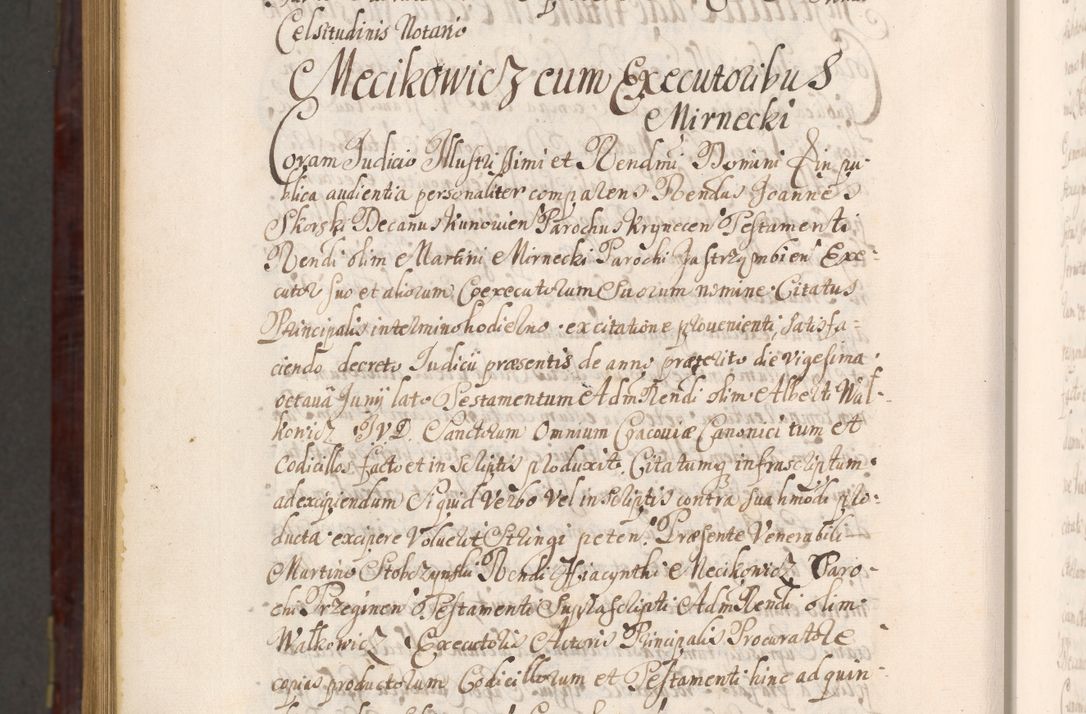 Celsitudinis Notario
Mecikowicz cum Executoribus
Mirnecki
Coram Judicio Illustrissimi et Rendmi Domini in pu-
blica audientia personaliter comparens Rendus Joannes
Skorski Decanus Kunovien Parochus Krynecen Testamenti
Rendi olim Martini Mirnecki Parochi Jastrzymbien Exe-
cutor suo et aliorum Coexecutorum Suorum nomine Citatus
Principalis in termino hodierno ex citatione provenienti, satisfa-
ciendo decreto Judicii præsentis de anno præterito die vigesima
octava Junij lato Testamentum Adm Rendi olim Alberti Wal-
kowicz J.V.D. Sanctorum Omnium Cracoviæ Canonici tum et
Codicillos facto et in scriptis produxit. Citatumq infrascriptum
ad excipiendum Siquid Verbo Vel in scriptis contra Suahmodi pro-
ducta excipere Voluerit Stringi peten. Præsente Venerabili
Martino Stobczynski Rendi Hiacynthi Mecikowicz Paro-
chi Przeginen Testamenti Suprascripti Adm Rendi olim
Walkowicz Executoris Actoris Principalis Procuratore
copias productorum Codicillorum et Testamenti hinc ad quin